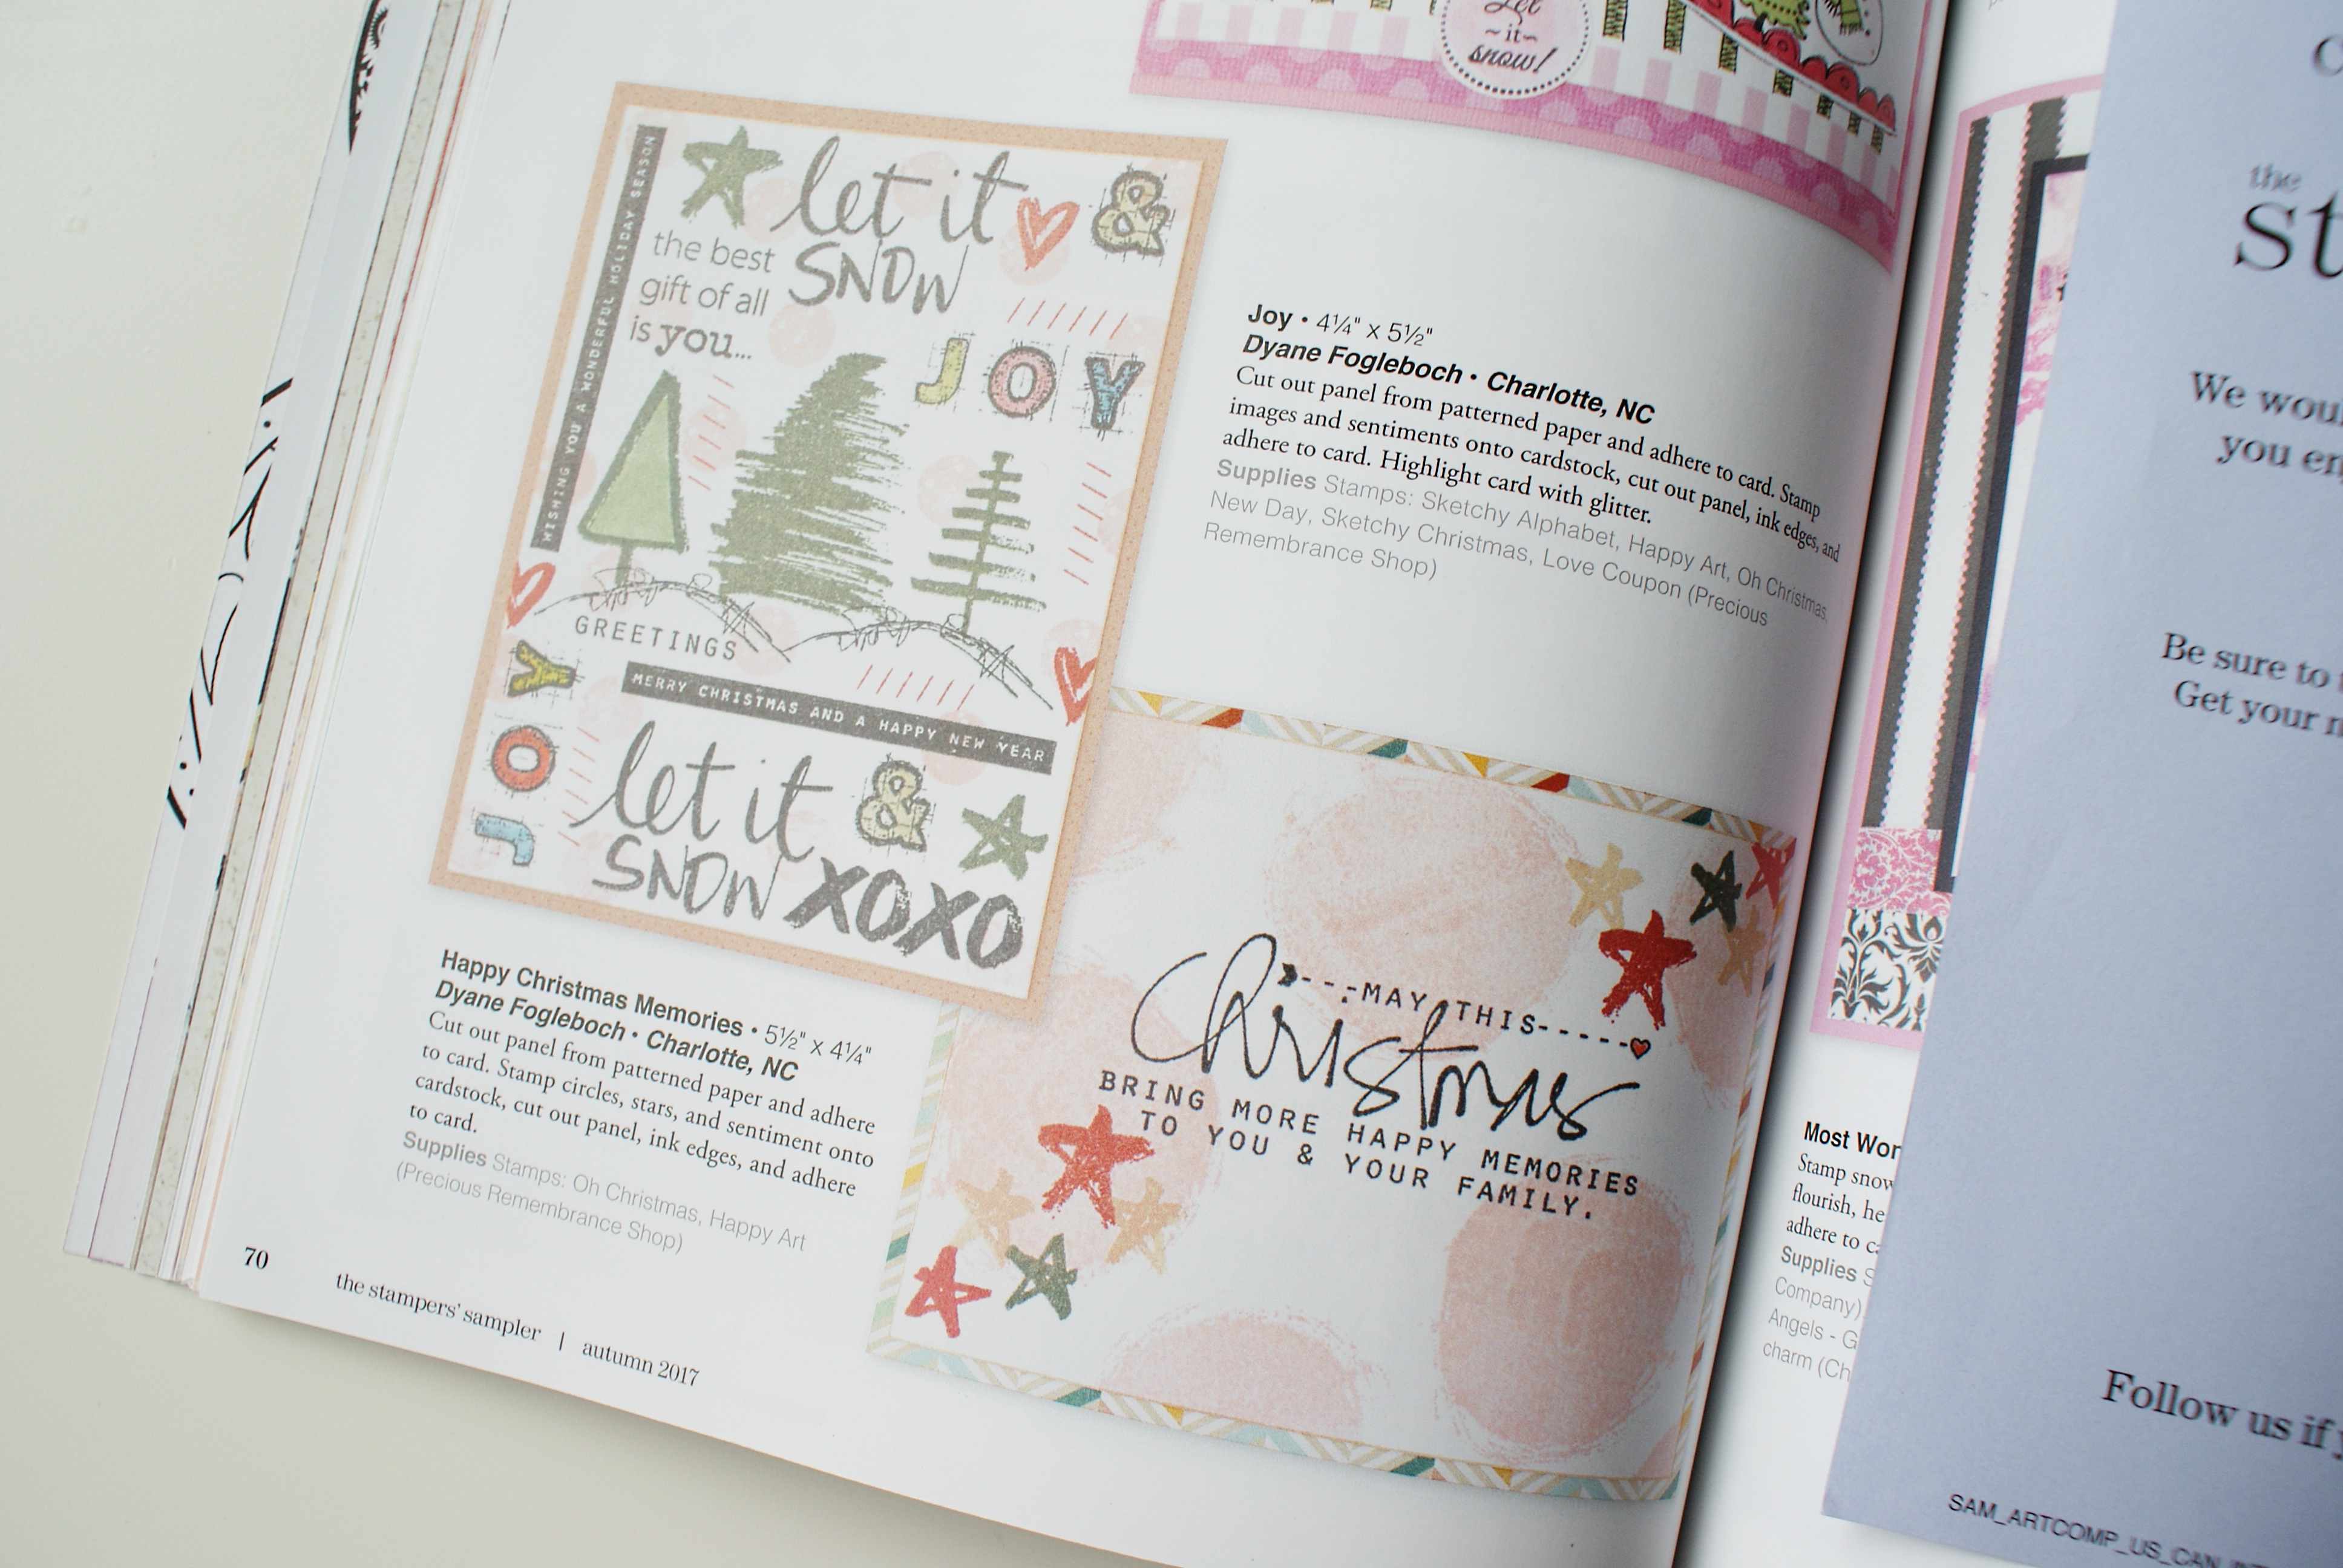 Let
~it~
snow!
WISHING YOU A WONDERFUL HOLIDAY SEASON
let it &
SNOW
the best
gift of all
is you...
JOY
GREETINGS
JOY
MERRY CHRISTMAS AND A HAPPY NEW YEAR
let it &
SNOW XOXO
Joy • 4¼" x 5½"
Dyane Fogleboch • Charlotte, NC
Cut out panel from patterned paper and adhere to card. Stamp
images and sentiments onto cardstock, cut out panel, ink edges, and
adhere to card. Highlight card with glitter.
Supplies Stamps: Sketchy Alphabet, Happy Art, Oh Christmas,
New Day, Sketchy Christmas, Love Coupon (Precious
Remembrance Shop)
MAY THIS
Christmas
BRING MORE HAPPY MEMORIES
TO YOU & YOUR FAMILY.
Happy Christmas Memories • 5½" x 4¼"
Dyane Fogleboch • Charlotte, NC
Cut out panel from patterned paper and adhere
to card. Stamp circles, stars, and sentiment onto
cardstock, cut out panel, ink edges, and adhere
to card.
Supplies Stamps: Oh Christmas, Happy Art
(Precious Remembrance Shop)
70
the stampers' sampler | autumn 2017
Most Wor
Stamp snow
flourish, he
adhere to ca
Supplies S
Company)
Angels - G
charm (Ch
the
st
We woul
you en
Be sure to
Get your
Follow us if
SAM_ARTCOMP_US_CAN